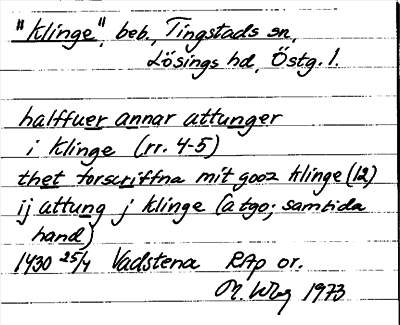 "Klinge", beb., Tingstads sn,
Lösings hd, Östg. l.
halffuer annar attunger
i Klinge (rr. 4-5)
thet forscriffna mit gooz klinge (12)
ij attung j klinge (a tgo; samtida
hand)
1430 25/4 Vadstena RAp or.
1973